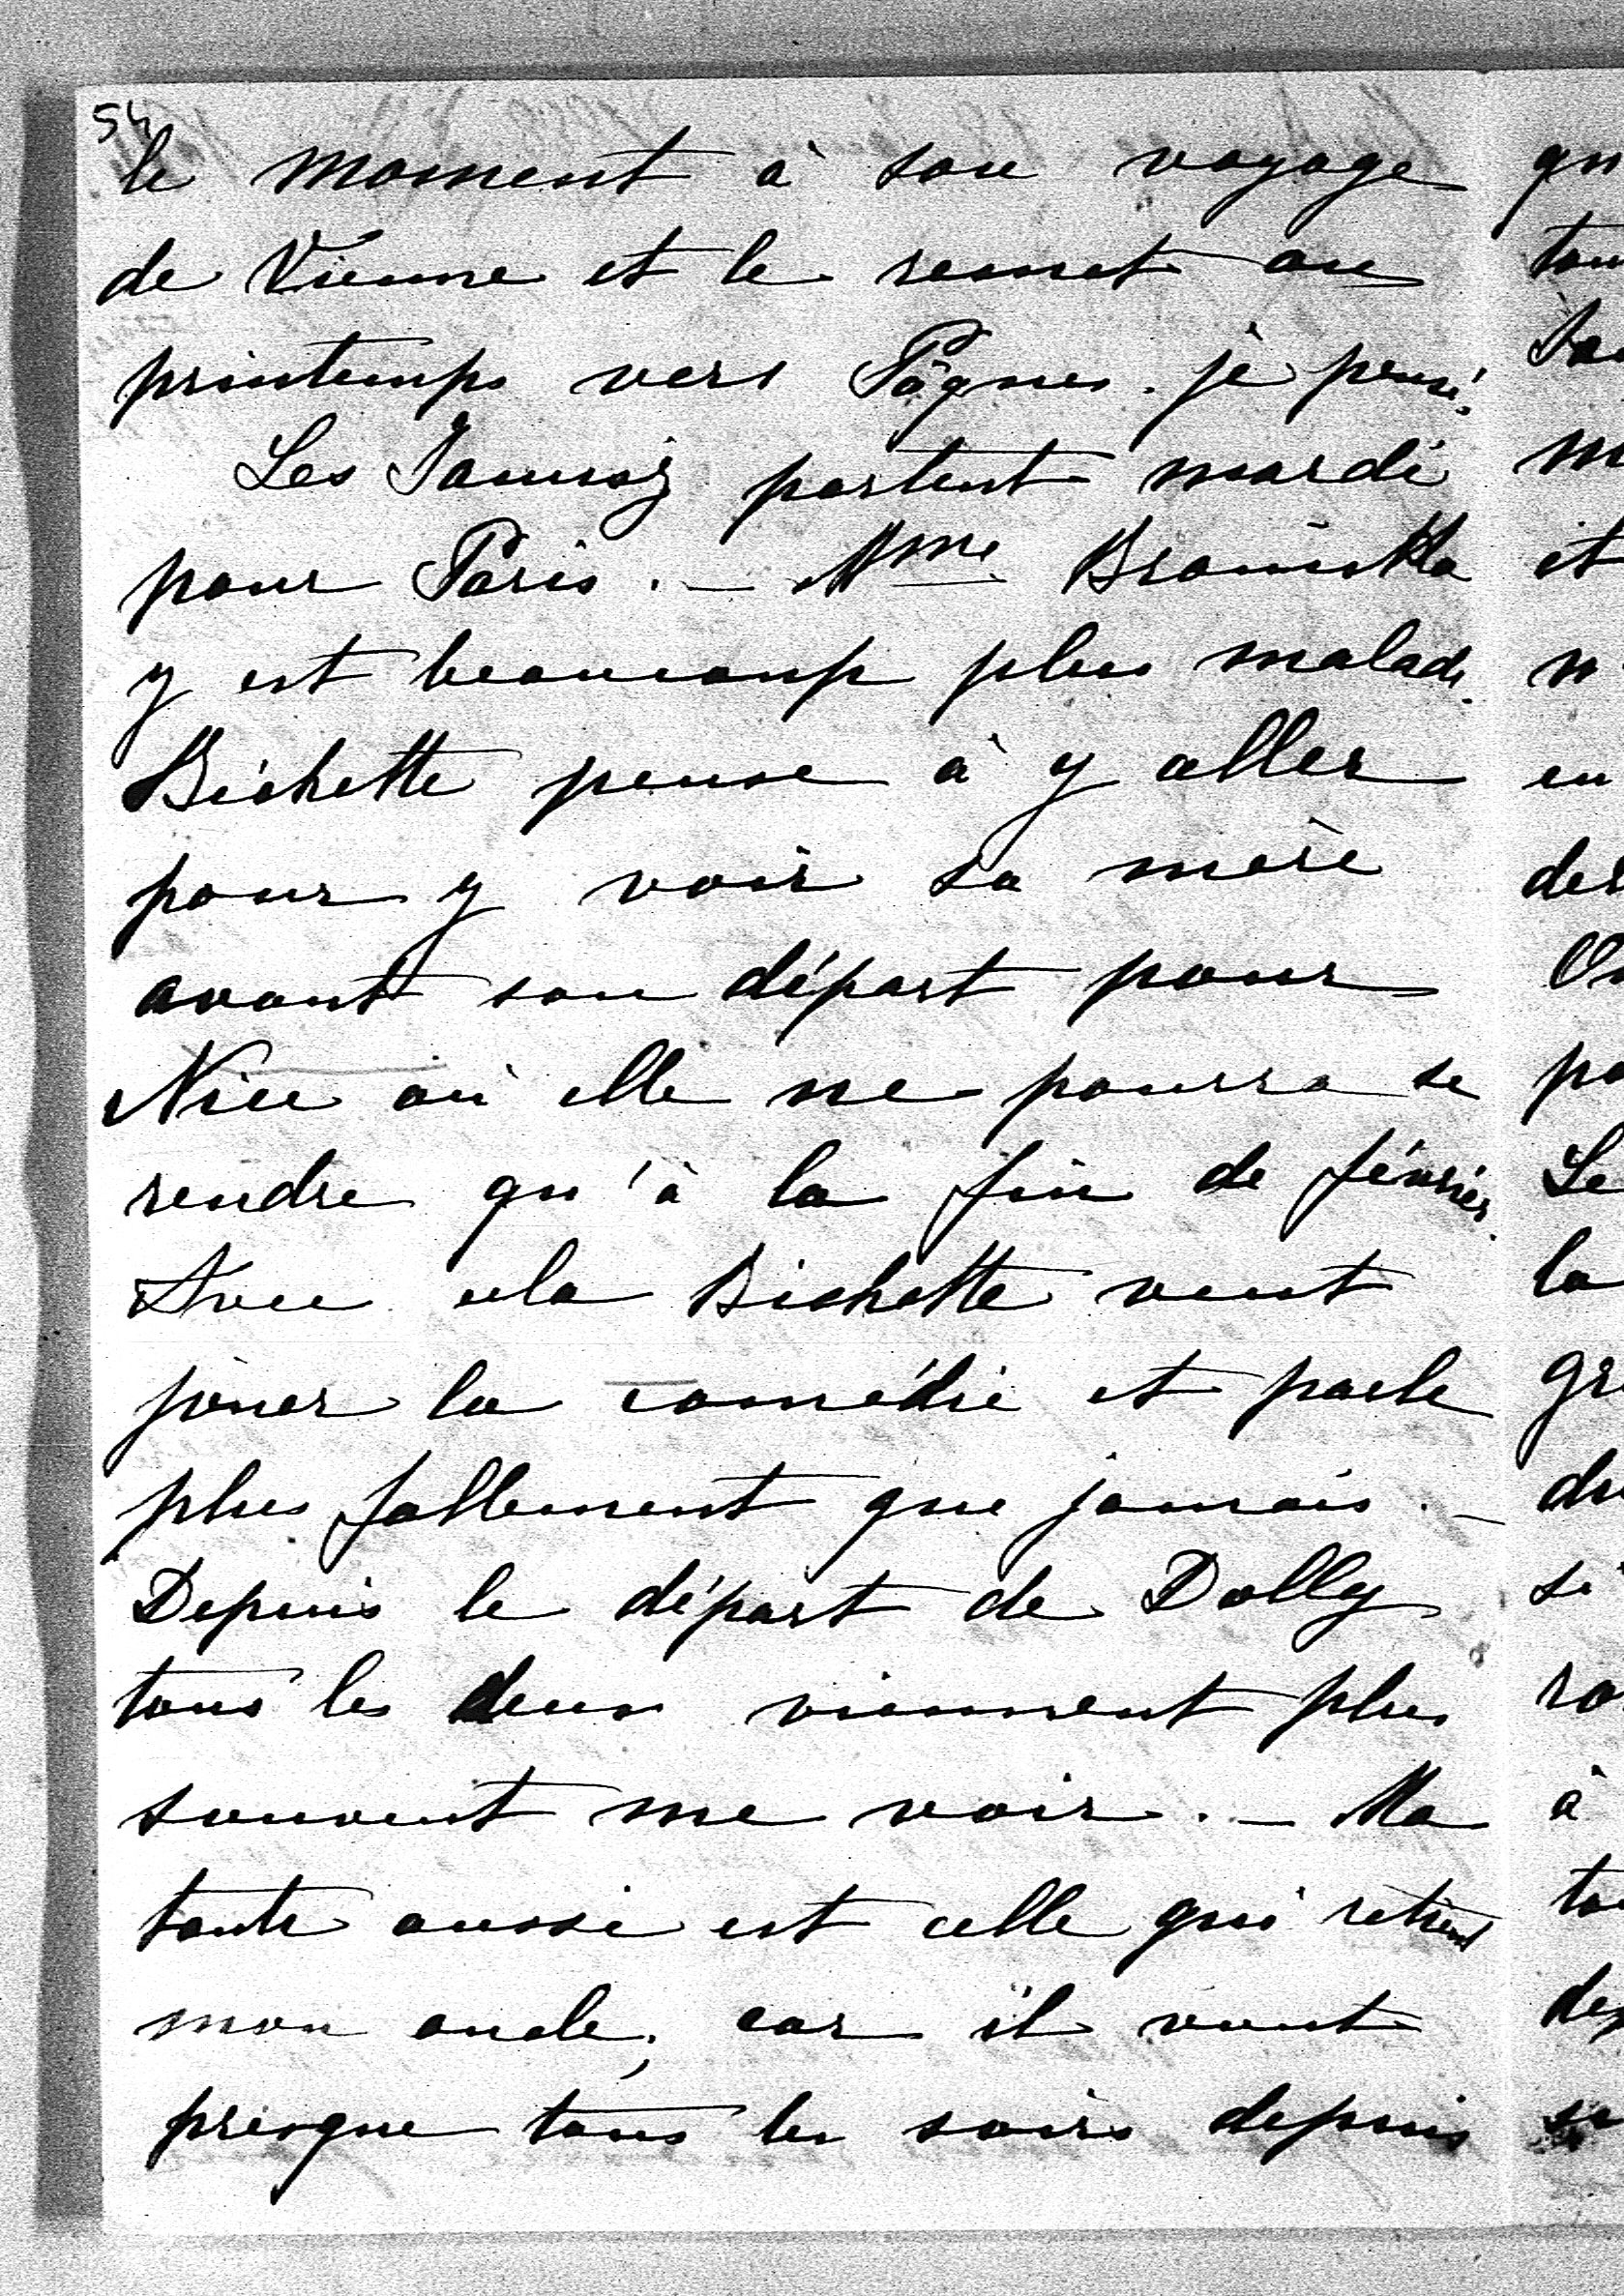 54
le moment à son voyage
de Vienne et le remet au
printemps vers Pâques je pense.
Les Jaunez partent mardi
pour Paris. — Mme
y est beaucoup plus malade.
Bichette pense à y aller
pour y voir sa mère
avant son départ pour
Nice où elle ne pourra se
rendre qu'à la fin de février.
Avec cela Bichette veut
jouer la comédie et parle
plus follement que jamais. —
Depuis le départ de Dolly
tous les deux viennent plus
souvent me voir. — Ma
tante aussi est celle qui retient
mon oncle, car il vient
presque tous les soirs depuis